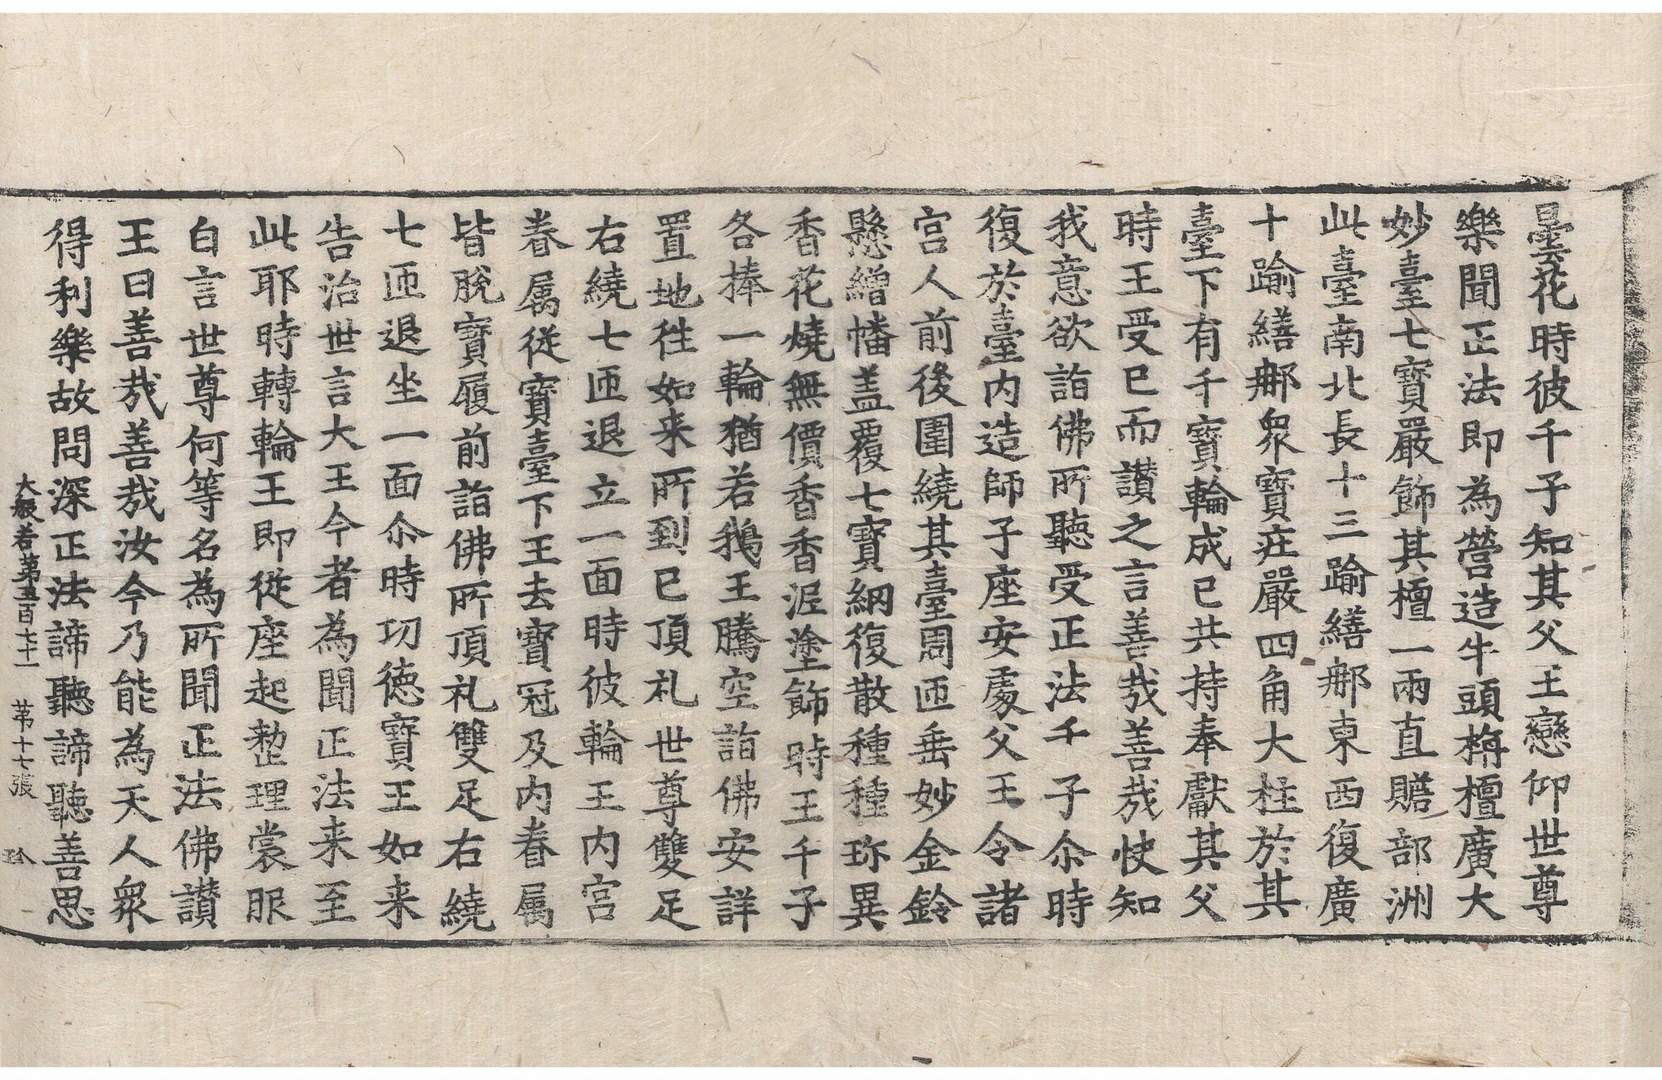 曇花時彼千子知其父王戀仰世尊
樂聞正法即為營造牛頭栴檀廣大
妙臺七寶嚴飾其檀一兩直贍部洲
此臺南北長十三踰繕那東西復廣
十踰繕那衆寶莊嚴四角大柱於其
臺下有千寶輪成已共持奉獻其父
時王受已而讃之言善哉善哉快知
我意欲詣佛所聽受正法千子尒時
復於臺內造師子座安處父王令諸
宮人前後圍繞其臺周匝垂妙金鈴
懸繒幡盖覆七寶網復散種種珎異
香花燒無價香香渥塗飾時王千子
各捧一輪猶若鵝王騰空詣佛安詳
置地徃如来所到已頂礼世尊雙足
右繞七匝退立一面時彼輪王內宮
眷属從寶臺下王去寶冠及內眷属
皆脫寶履前詣佛所頂礼雙足右繞
七匝退坐一面尒時功徳寶王如来
告治世言大王今者為聞正法来至
此耶時轉輪王即從座起整理裳服
白言世尊何等名為所聞正法佛讃
王曰善哉善哉汝今乃能為天人衆
得利樂故問深正法諦聽諦聽善思
大般若第五百七十一 苐十七張 珎